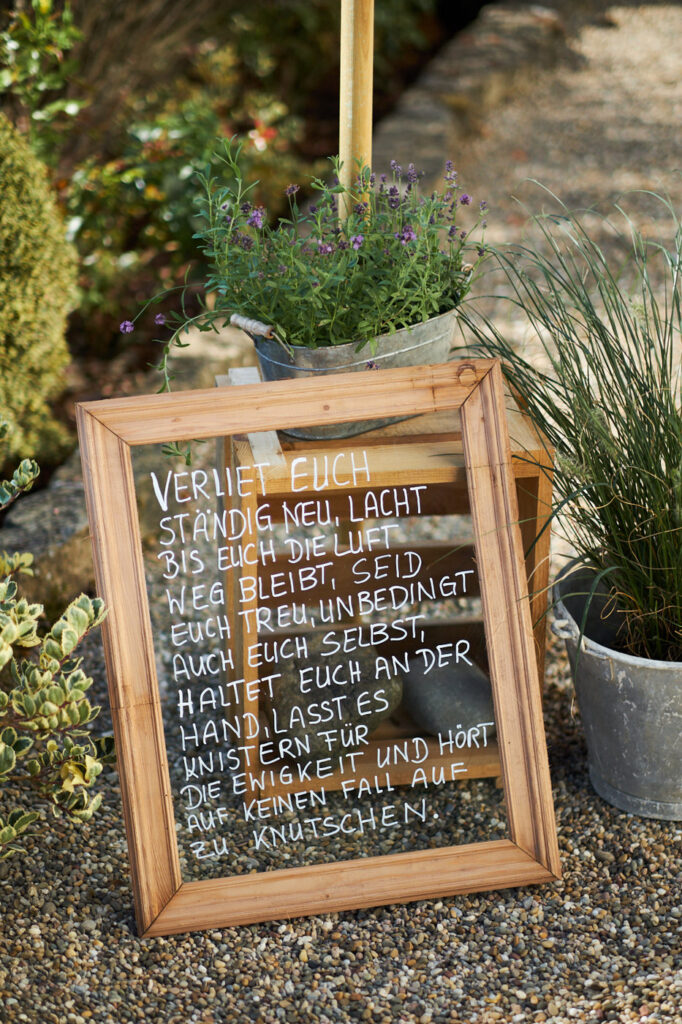 VERLIEBT EUCH
STÄNDIG NEU, LACHT
BIS EUCH DIE LUFT
WEG BLEIBT, SEID
EUCH TREU, UNBEDINGT
AUCH EUCH SELBST,
HALTET EUCH AN DER
HAND, LASST ES
KNISTERN FÜR
DIE EWIGKEIT UND HÖRT
AUF KEINEN FALL AUF
ZU KNUTSCHEN.